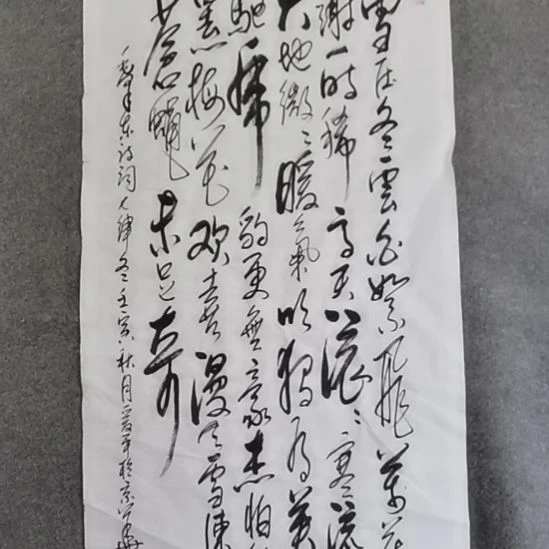 雪压冬雲白絮飛萬花
謝一时稀高天滚滚寒流
大地微微暖氣吹独有英
驰虎豹更無豪杰怕
罴梅花欢喜漫天雪凍
蒼蝇未足奇
毛泽东诗词七律冬云壬寅秋月 平於京华